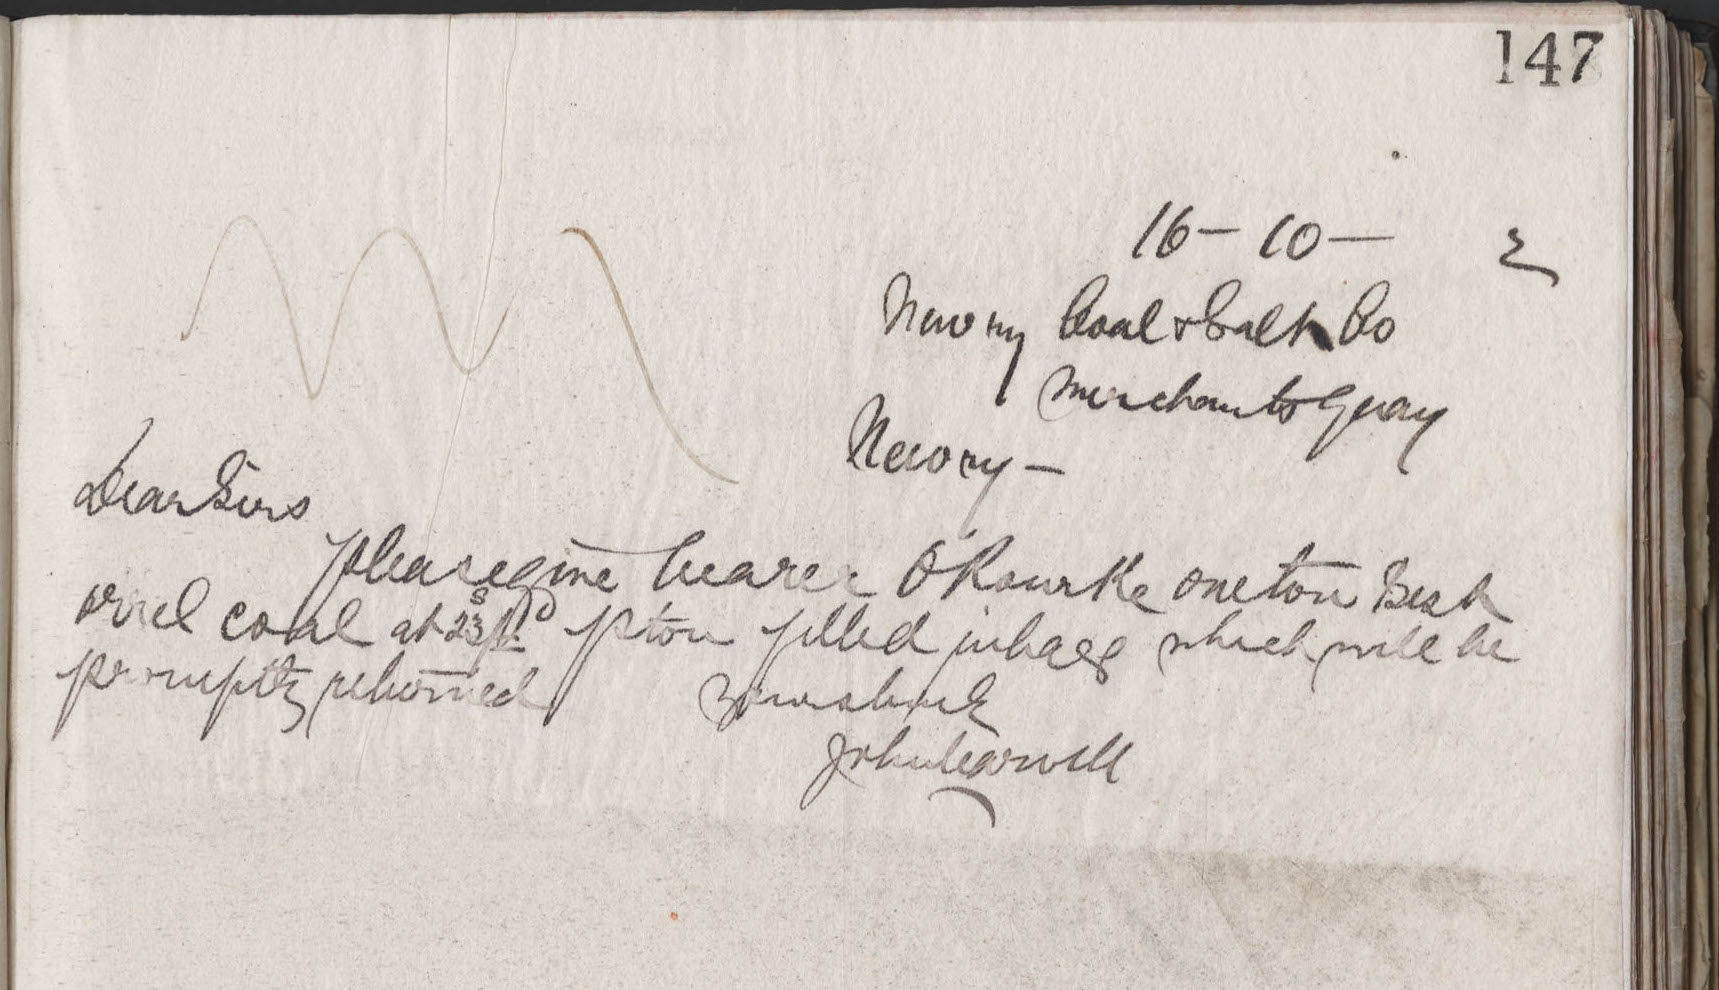 147
16 - 10 -
Newry Coal & Salt Co
Merchants Quay
Newry -
Dear Sirs
please give bearer O'Rourke one ton Best
orrel coal at 23s/ p ton filled in bags which will be
promptly returned Yours truly
John